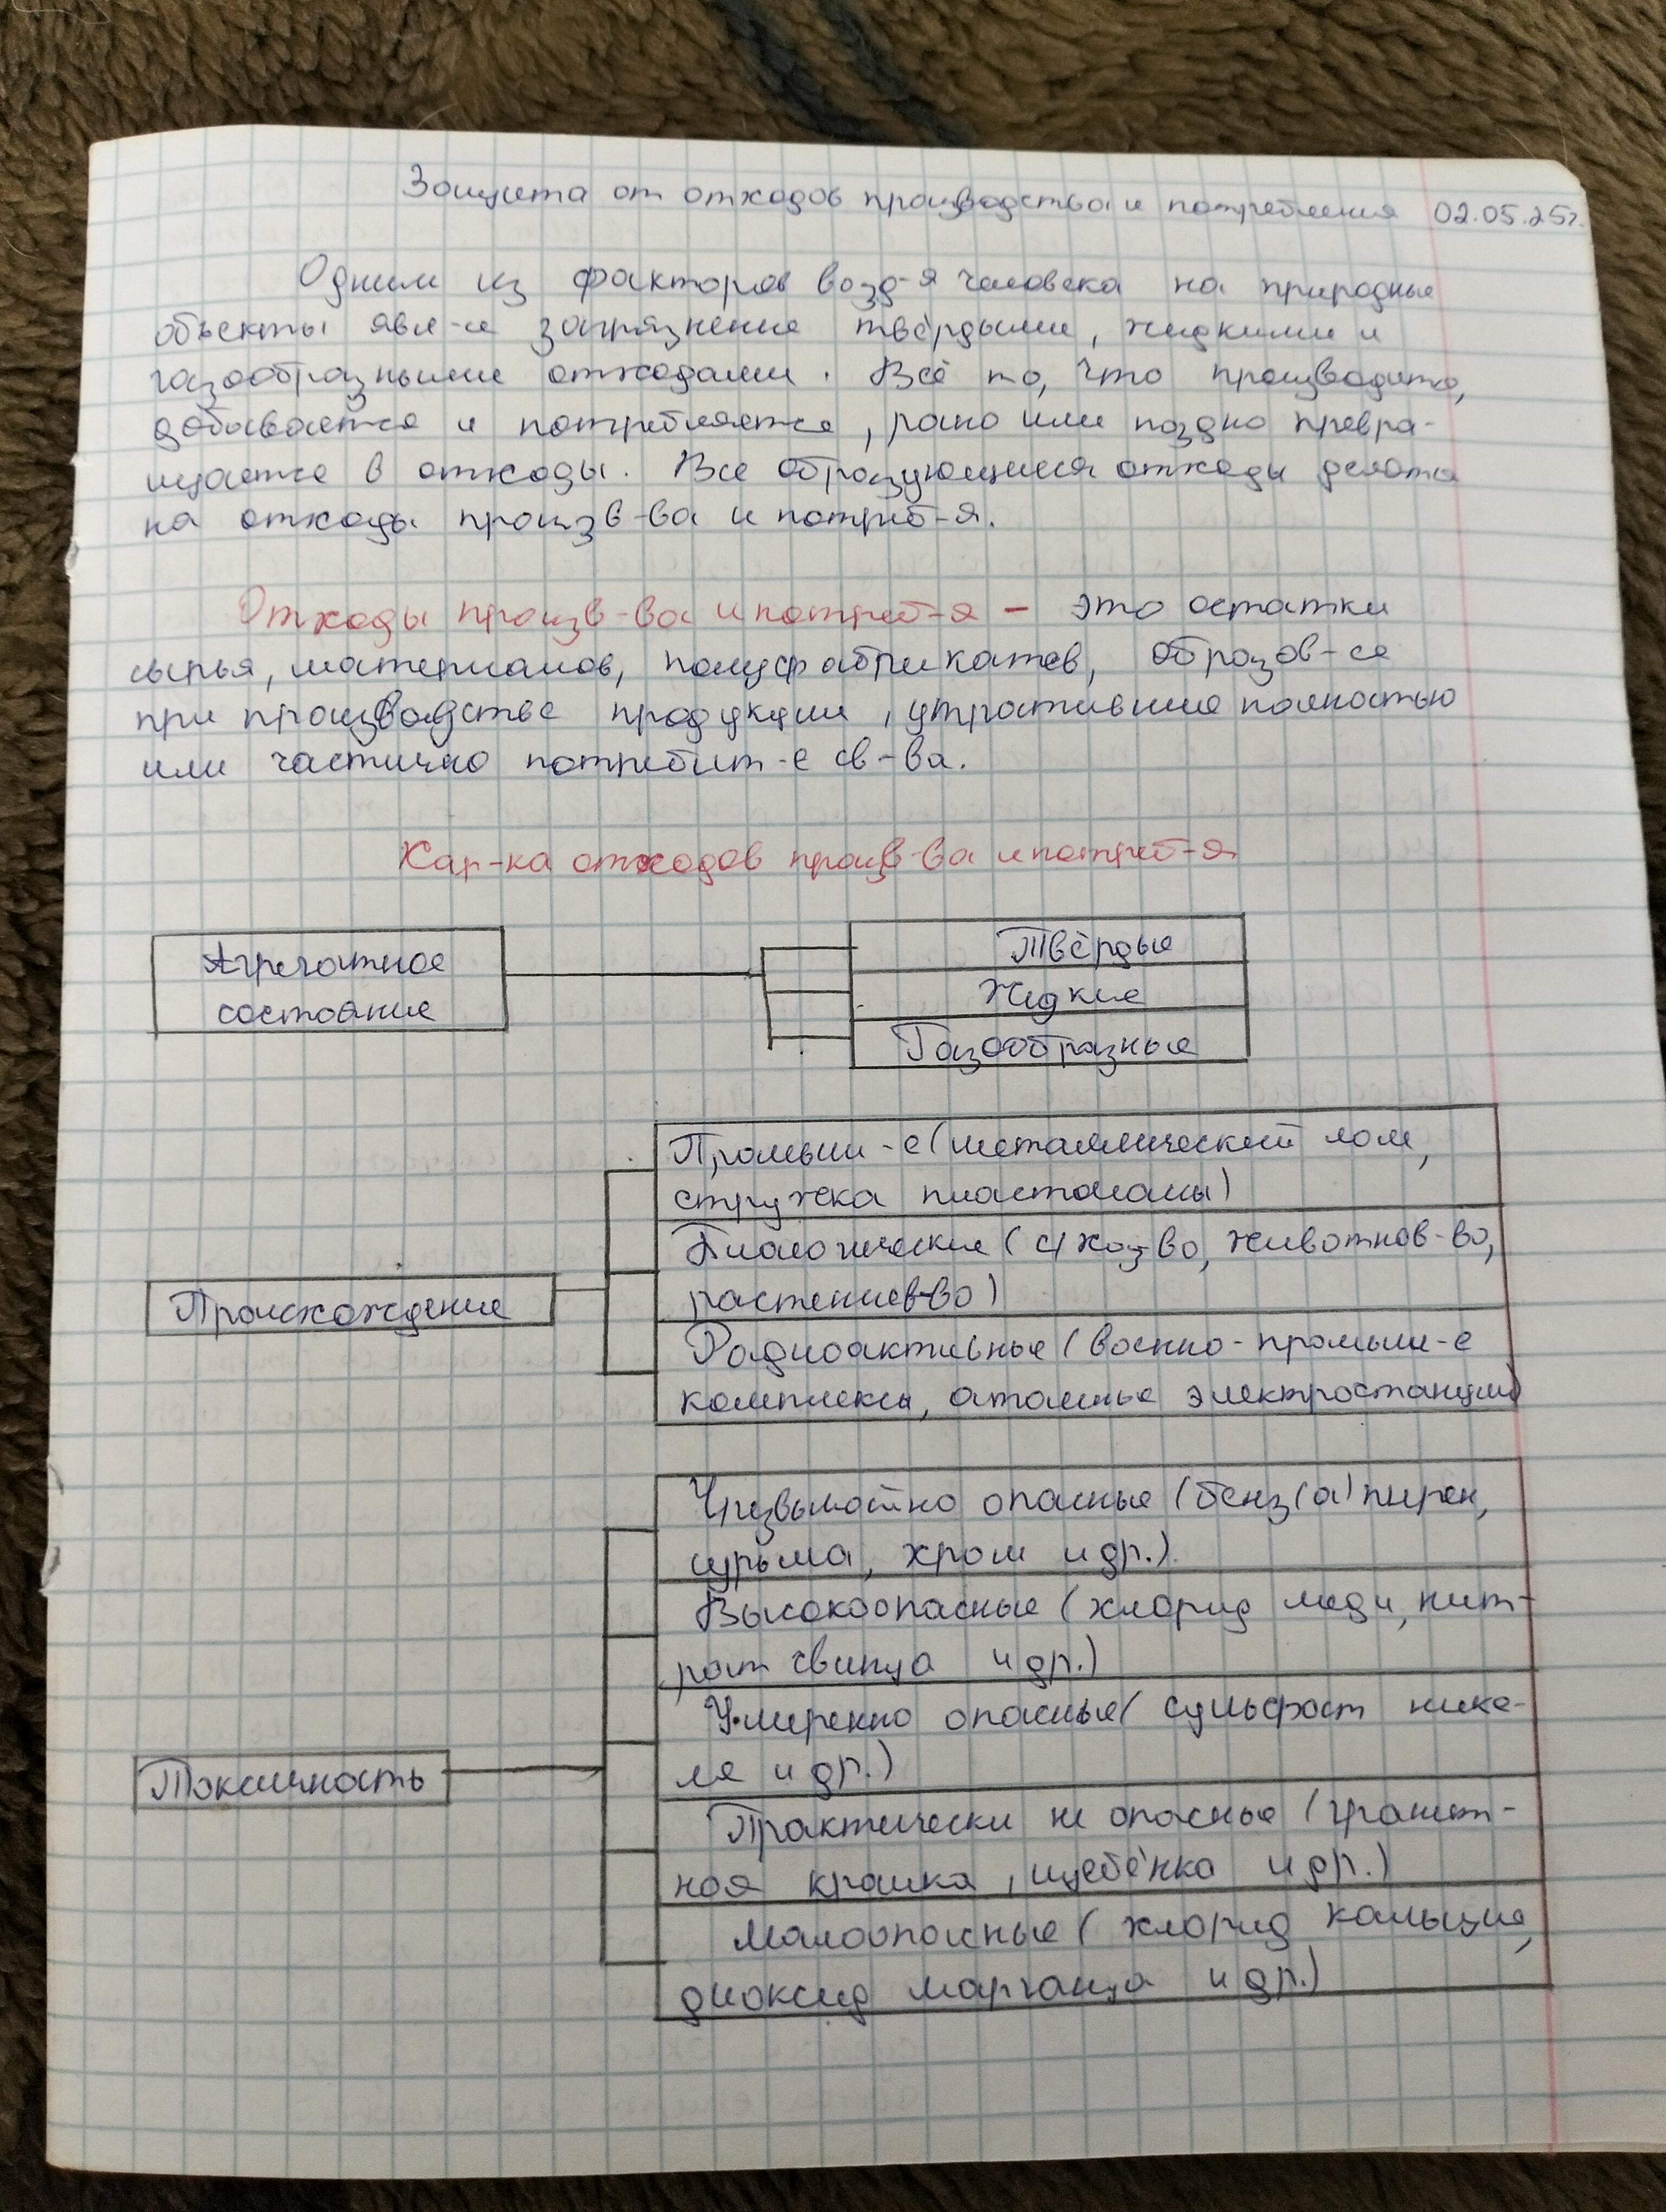 Защита от отходов производства и потребления 02.05.25г.
Одним из факторов возд-я человека на природные
объекты явл-е загрязнение твёрдыми, жидкими и
газообразными отходами. Всё то, что производится,
добывается и потребляется, рано или поздно превра-
щается в отходы. Все образующиеся отходы делятся
на отходы произв-ва и потреб-я.
Отходы произв-ва и потреб-я – это остатки
сырья, материалов, полуфабрикатов, образов-се
при производстве продукции, утратившие полностью
или частично потребит-е св-ва.
Хар-ка отходов произв-ва и потреб-я
Агрегатное
состояние
Твёрдые
Жидкие
Газообразные
Происхождение
Промышл-е (металлический лом,
стружка пластмассы)
Биологические (с/хоз-во, животнов-во,
растениев-во)
Радиоактивные (военно-промышл-е
комплексы, атомные электростанции)
Токсичность
Чрезвычайно опасные (бенз(а)пирен,
сурьма, хром и др.)
Высокоопасные (хлорид меди, нит-
рат свинца и др.)
Умеренно опасные (сульфат нике-
ля и др.)
Практически не опасные (гранит-
ная крошка, щебёнка и др.)
Малоопасные (хлорид кальция,
диоксид марганца и др.)